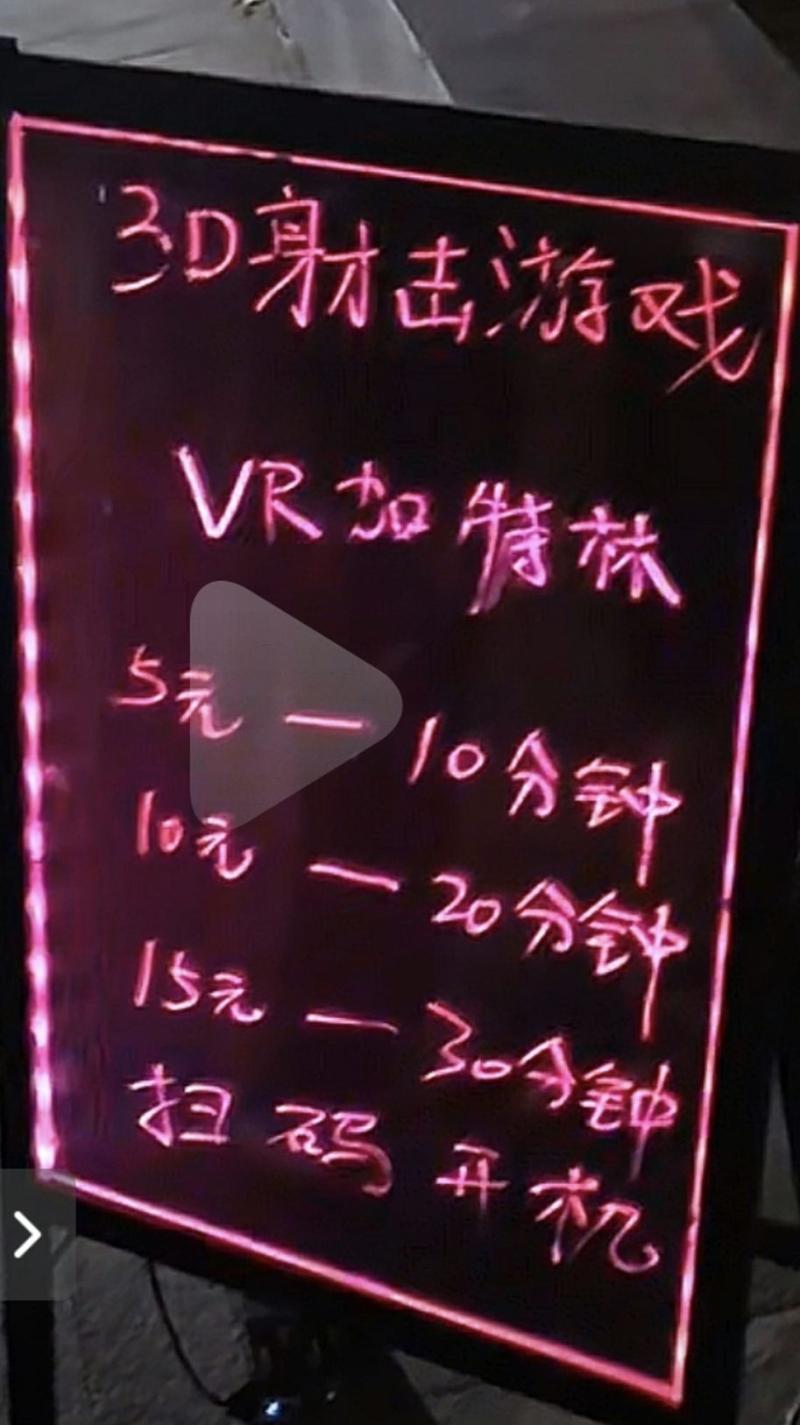 3D射击游戏
VR加特林
5元一10分钟
10元一20分钟
15元一30分钟
扫码开机